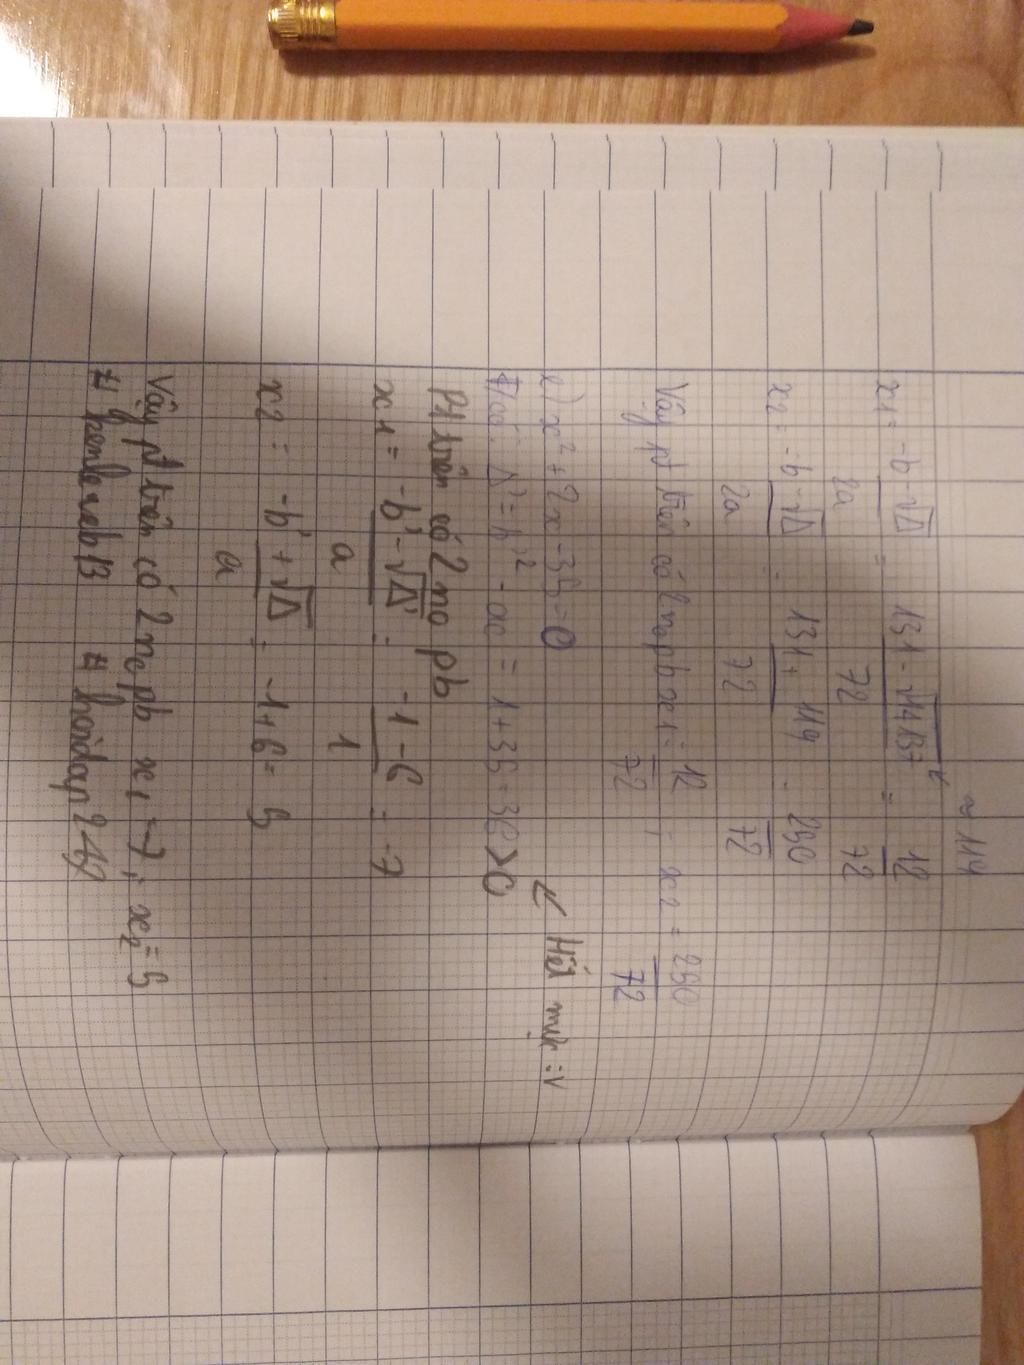 ≈ 119
x1 = -b - √Δ / 2a = 131 - √14137 / 72 = 12 / 72
x2 = -b - √Δ / 2a = 131 + 119 / 72 = 250 / 72
Vậy pt trên có 2 no pb x1 = 12 / 72 ; x2 = 250 / 72
e) x² + 2x - 35 = 0 ↙ Hết mực :v
Ta có: Δ' = b'² - ac = 1 + 35 = 36 > 0
Pt trên có 2 no pb
x1 = -b' - √Δ' / a = -1 - 6 / 1 = -7
x2 = -b' + √Δ' / a = -1 + 6 = 5
Vậy pt trên có 2 no pb x1 = -7 ; x2 = 5
# hoidap 247